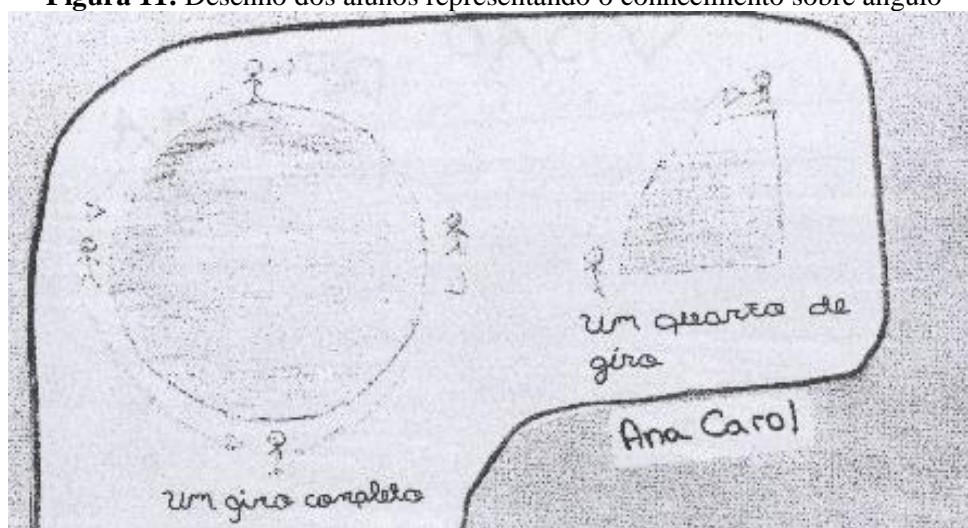 Figura 11: Desenho dos alunos representando o conhecimento sobre ângulo
Um quarto de
giro
Ana Carol
Um giro completo